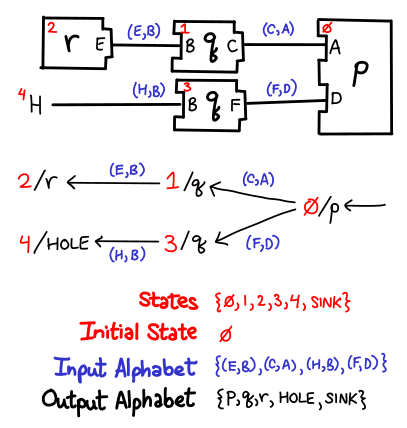 2 r E (E,B) 1 B q C (C,A) Ø A p
4 H (H,B) 3 B q F (F,D) D
(E,B)
2/r 1/q (C,A)
Ø/p
4/HOLE (H,B) 3/q (F,D)
States {Ø,1,2,3,4, SINK}
Initial State Ø
Input Alphabet {(E,B),(C,A),(H,B),(F,D)}
Output Alphabet {P,q,r, HOLE, SINK}